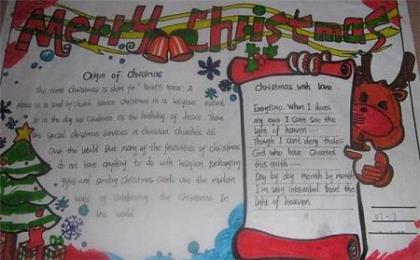 Merry Christmas
Origin of Christmas
The name Christmas is short for "Christ's Mass". A
Mass is a kind of Church service Christmas is a religious
It is the day we celebrate as the birthday of Jesus. There
are special christmas services in christian churches all
Over the world But many of the festivities of christmas
do not have anything to do with religion. Exchanging
gifts and sending Christmas Cards are the modern
ways of celebrating the Christmas In
the world.
Christmas with love
Everytime. When I does
my eyes I can't see the
light of heaven
Though I can't deny there's
God who have Created
this earth
Day by day month by month
I'm very interested bout the
light of heaven